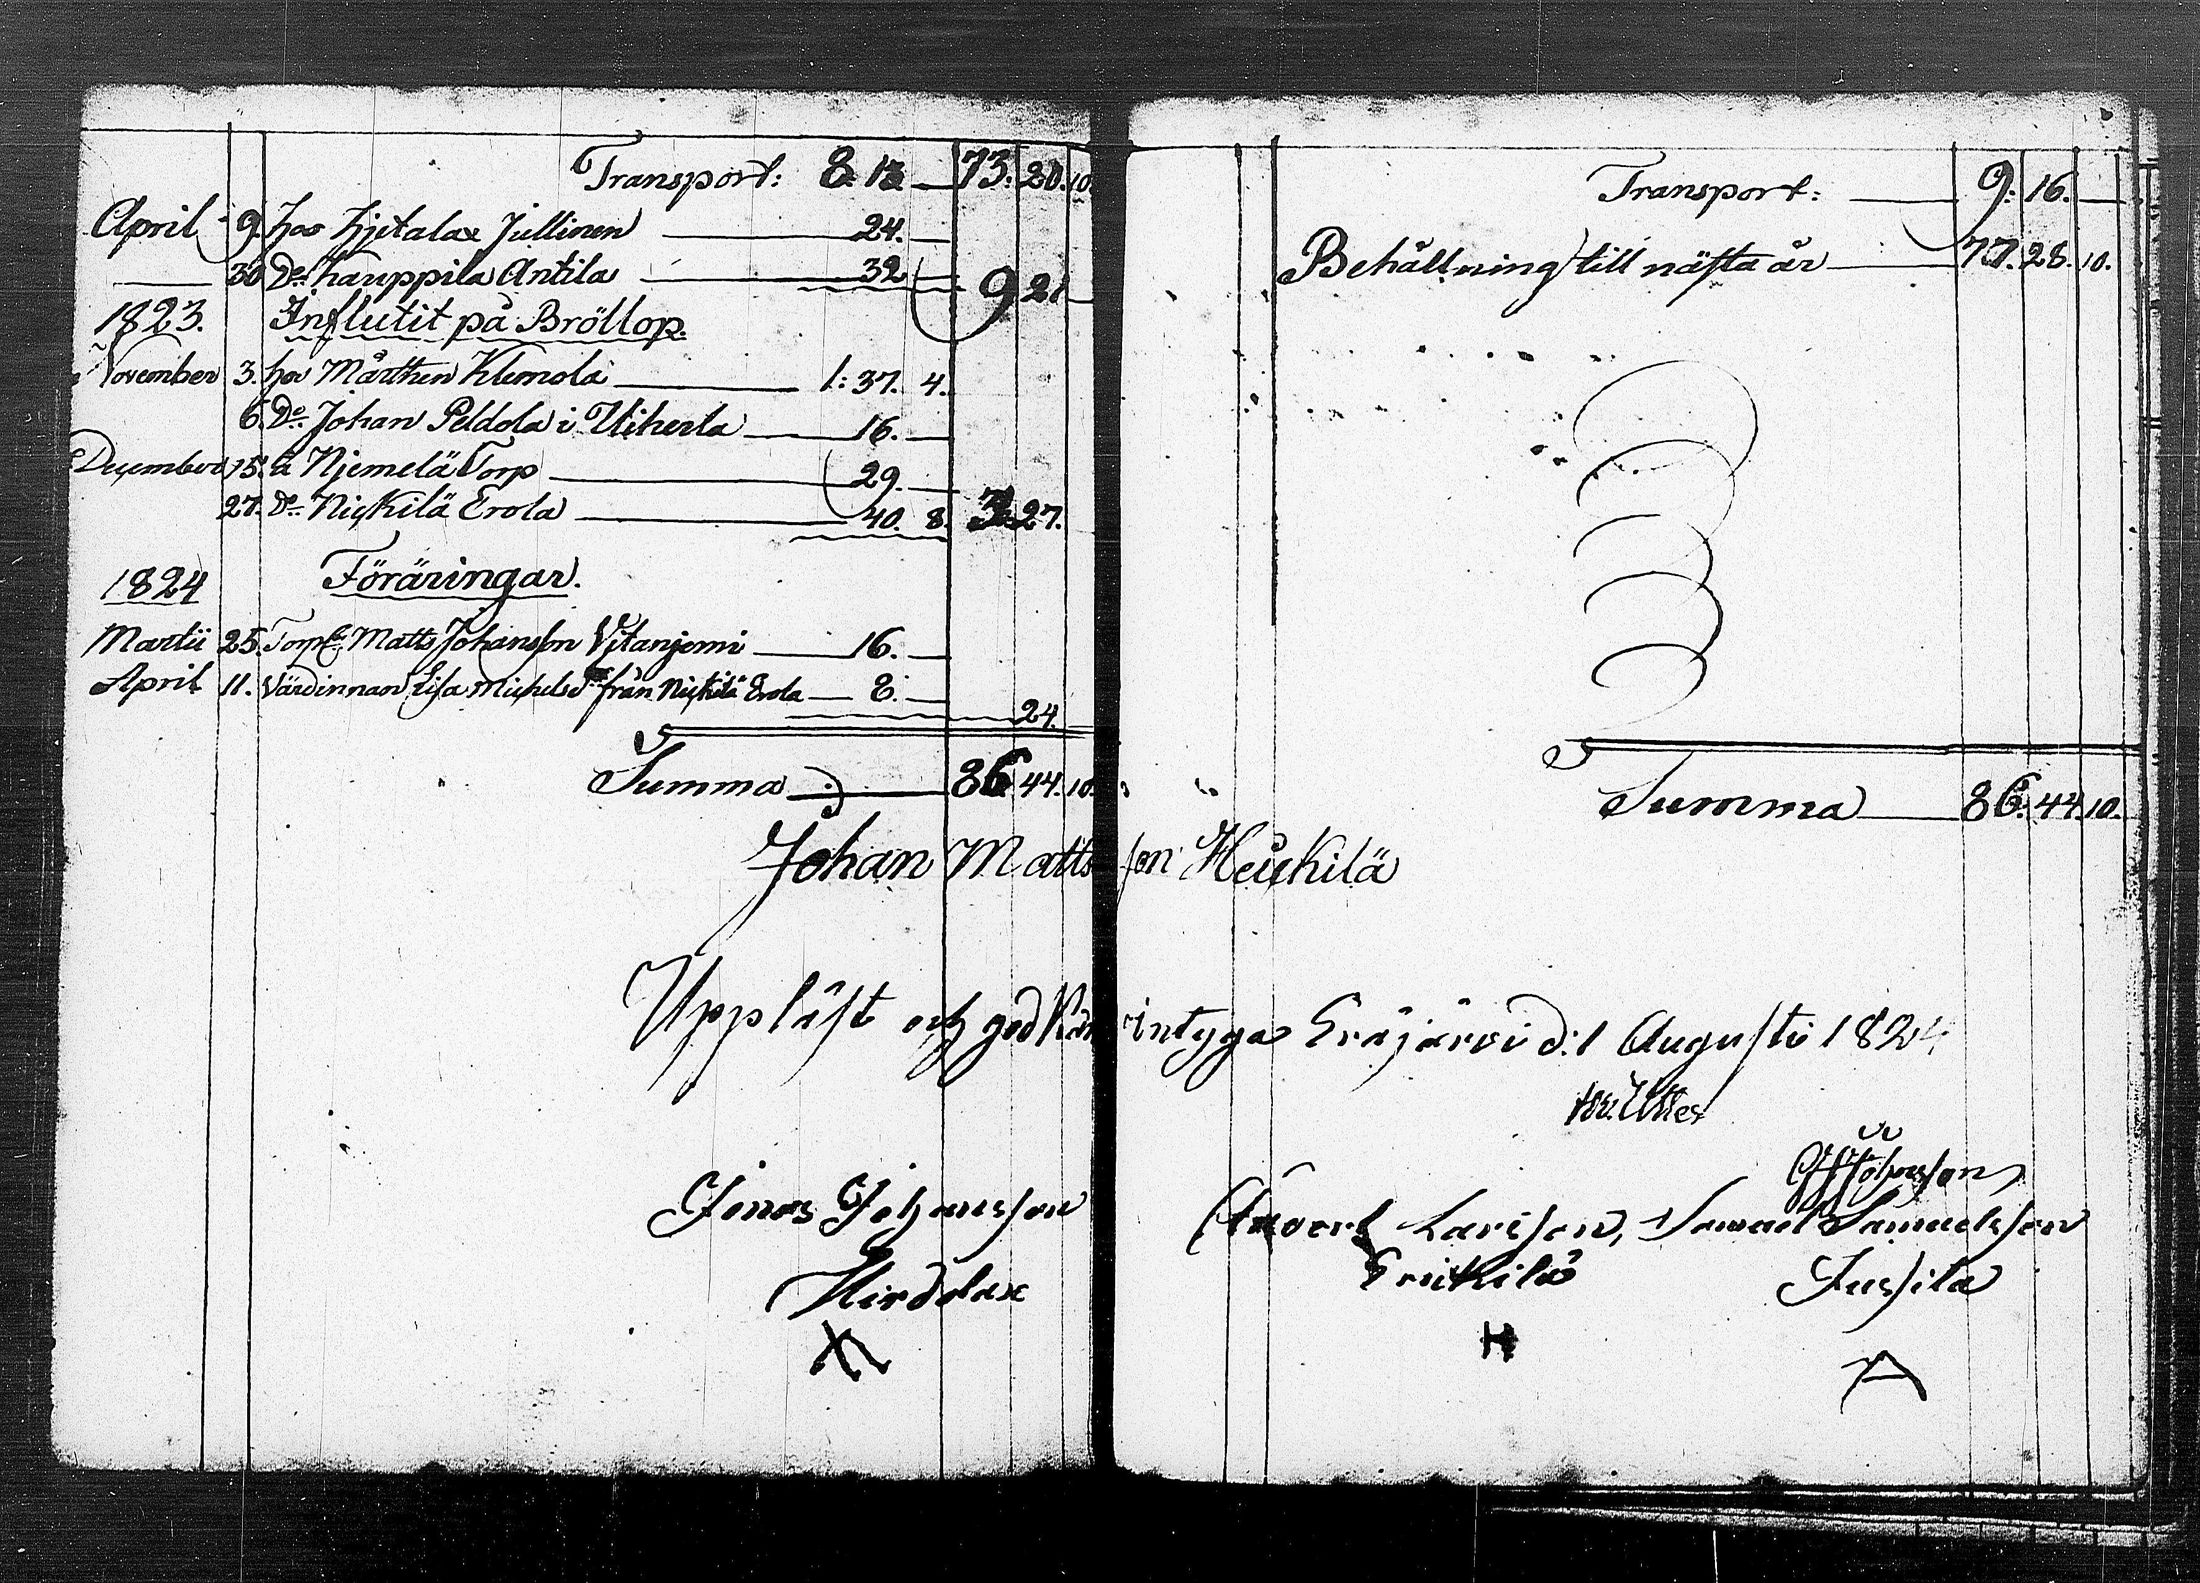 Transport: 8. 13. — 73. 20. 10.
April 9. hos Hjitalax Jullinen — 24. —
— 30 Do Kauppila Antila — 32 — 9 21 —
1823. Influtit på Bröllop.
November 3. hos Mårthen Klemola — 1: 37. 4.
6. Do Johan Peldola i Uiherla — 16. —
December 15. å Njemelä Torp — 29. —
27. Do Nickilä Erola — 40. 8. 3. 27.
1824 Föräringar.
Martii 25. Matts Johansson Vitanjemi — 16. —
April 11. Värdinnan Lisa Michelsdr från Nickilä Erola — 8. —
24. —
Summa — 86. 44. 10.
Transport: — 9. 16. —
Behållning till nästa år — 77. 28. 10.
Summa — 86. 44. 10.
Johan Mattsson Heickilä
Uppläst och godkän intygas Eräjärvi d: 1 Augusti 1824
Johansson
Jonas Johansson Larsson, Samuel Samuelsson
Hirdolax Erickilä Jussila